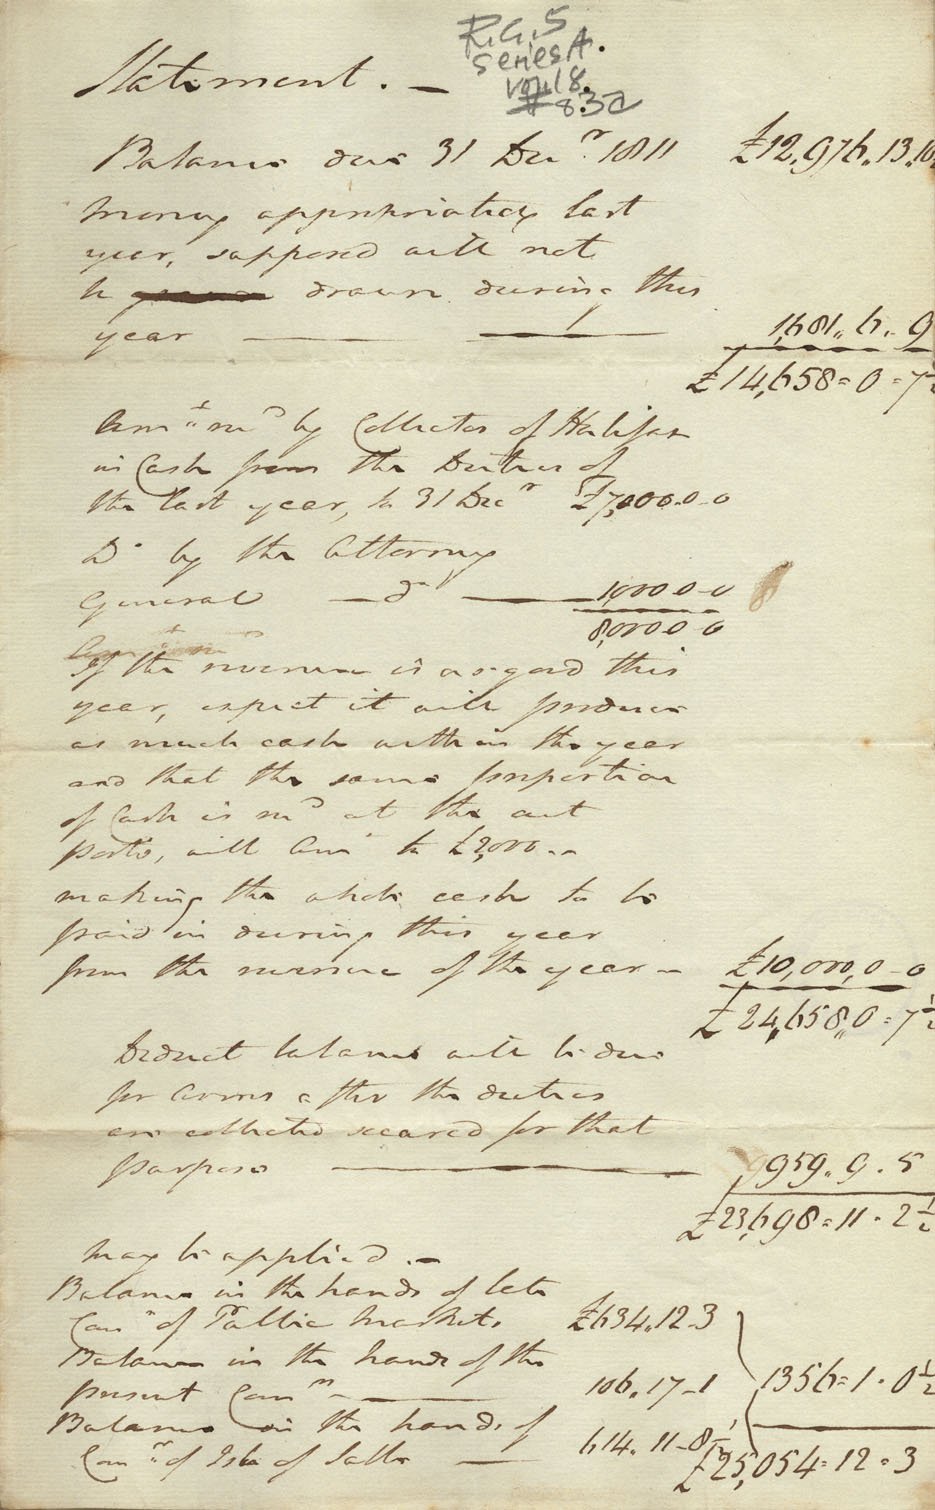 R.G. 5
Series A.
vol. 18.
# 83a
Statement. —
Balance due 31 Decr. 1811 £12,976.13.10
Money appropriated last
year, supposed will not
be drawn during this
year — 1,681.. 6.. 9
£14,658 = 0 = 7½
Amt. recd by Collector of Halifax
in Cash from the Duties of
the last year, to 31 Decr £7,000..0-0
Do. by the Attorney
General — do — 1,000 0-0
8,000 0-0
If the revenue is as good this
year, expect it will produce
as much cash within the year
and that the same proportion
of Cash is recd at the out
ports, will amt to £2,000..
making the whole cash to be
paid in during this year
from the revenue of the year — £10,000, 0-0
£24,658,,0=7½
Deduct balance will be due
for arms after the duties
are collected secured for that
purpose — 959.. 9. 5
£23,698=11.2½
May be applied. —
Balance in the hands of late
Comrs of Public Markets £634.12.3
Balance in the hands of the
present Comrs — 106.17-1
1356=1.0½
Balance in the hands of
Comrs of Isle of Sable — 614.11-8½
£25,054=12=3